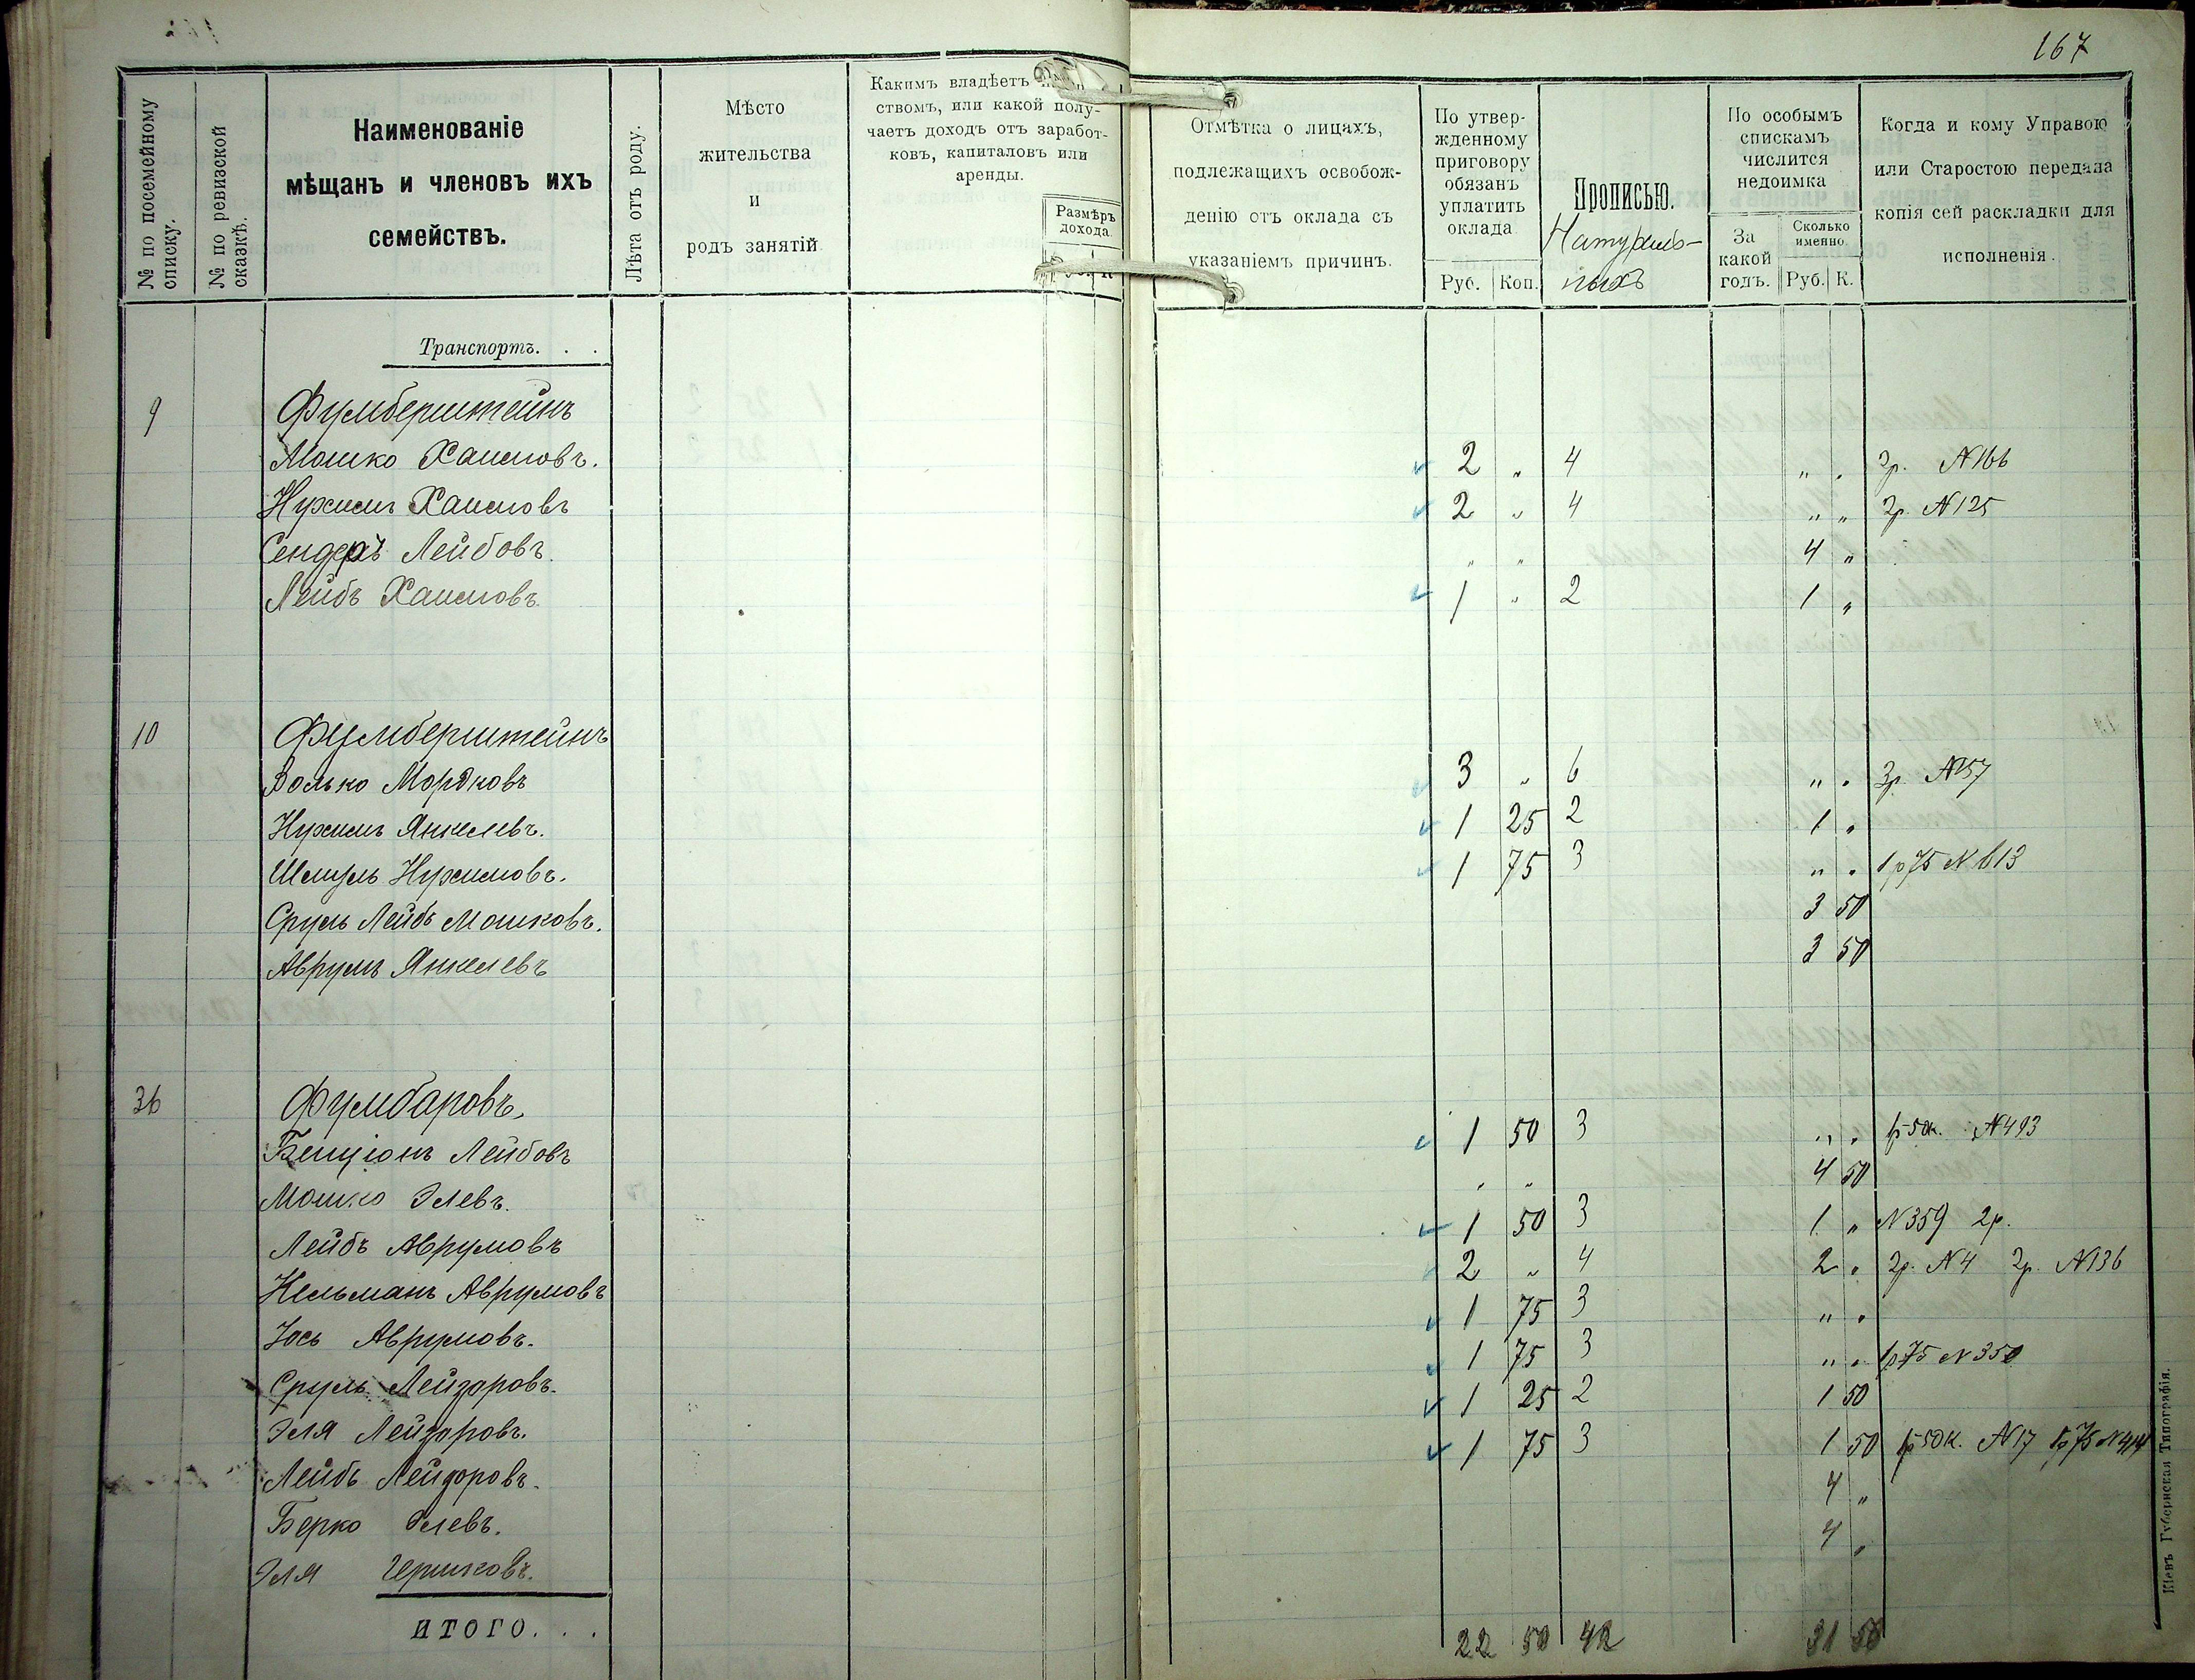 167
№ по посемейному списку.
№ по ревизской сказкѣ.
Наименованіе
мѣщанъ и членовъ ихъ
семействъ.
Лѣта отъ роду.
Мѣсто
жительства
и
родъ занятій
Какимъ владѣетъ
ствомъ, или какой полу-
чаетъ доходъ отъ заработ-
ковъ, капиталовъ или
аренды.
Размѣръ
дохода.
Отмѣтка о лицахъ,
подлежащихъ освобож-
денію отъ оклада съ
указаніемъ причинъ.
По утвер-
жденному
приговору
обязанъ
уплатить
оклада
Руб. Коп.
Прописью.
Натураль-
ныхъ
По особымъ
спискамъ
числится
недоимка
За
какой
годъ.
Сколько
именно.
Руб. К.
Когда и кому Управою
или Старостою передана
копія сей раскладки для
исполненія.
Транспортъ. . .
9 Фумберштейнъ
Мошко Хаимовъ. 2 „ 4 „ „ 2р. №166
Нухимъ Хаимовъ 2 „ 4 „ „ 2р. №125
Сендеръ Лейбовъ. „ „ 4 „
Лейбъ Хаимовъ. 1 „ 2 1 „
10 Фумберштейнъ
Волько Мордковъ 3 „ 6 „ „ 3р. №57
Нухимъ Янкелевъ. 1 25 2 1 „
Шмуль Нухимовъ. 1 75 3 „ „ 1р75 №613
Сруль Лейбъ Мошковъ. 3 50
Аврумъ Янкелевъ 3 50
36 Фумбаровъ.
Бенціонъ Лейбовъ 1 50 3 „ „ 1р50к. №493
Мошко Элевъ. „ „ 4 50
Лейбъ Аврумовъ 1 50 3 1 „ №359 2р.
Кельманъ Аврумовъ 2 „ 4 2 „ 2р. №4 2р. №136
Іось Аврумовъ. 1 75 3 „ „
Сруль Лейзоровъ. 1 75 3 „ „ 1р75 №350
Эля Лейзоровъ. 1 25 2 1 50
Лейбъ Лейзоровъ. 1 75 3 1 50 1р50к. №17 1р75
Берко Элевъ. 4 „
Эля Гершковъ. 4 „
ИТОГО. . . 22 50 42 31 50
Кіевъ Губернская Типографія.